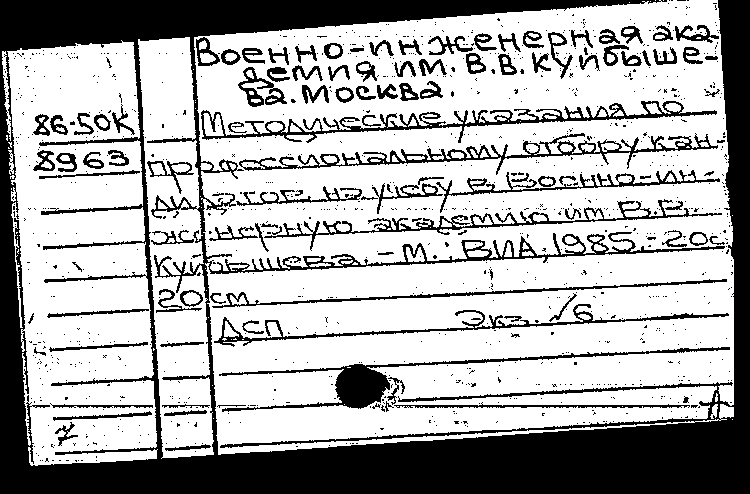 Военно-инженерная ака-
демия им. В.В. Куйбыше-
ва. Москва.
86-50К Методические указания по
8963 профессиональному отбору кан-
дидатов на учебу в Военно-ин-
женерную академию им В.В.
Куйбышева. - М.: ВИА, 1985. - 20с.
20 см.
ДСП Экз. √6
7 А